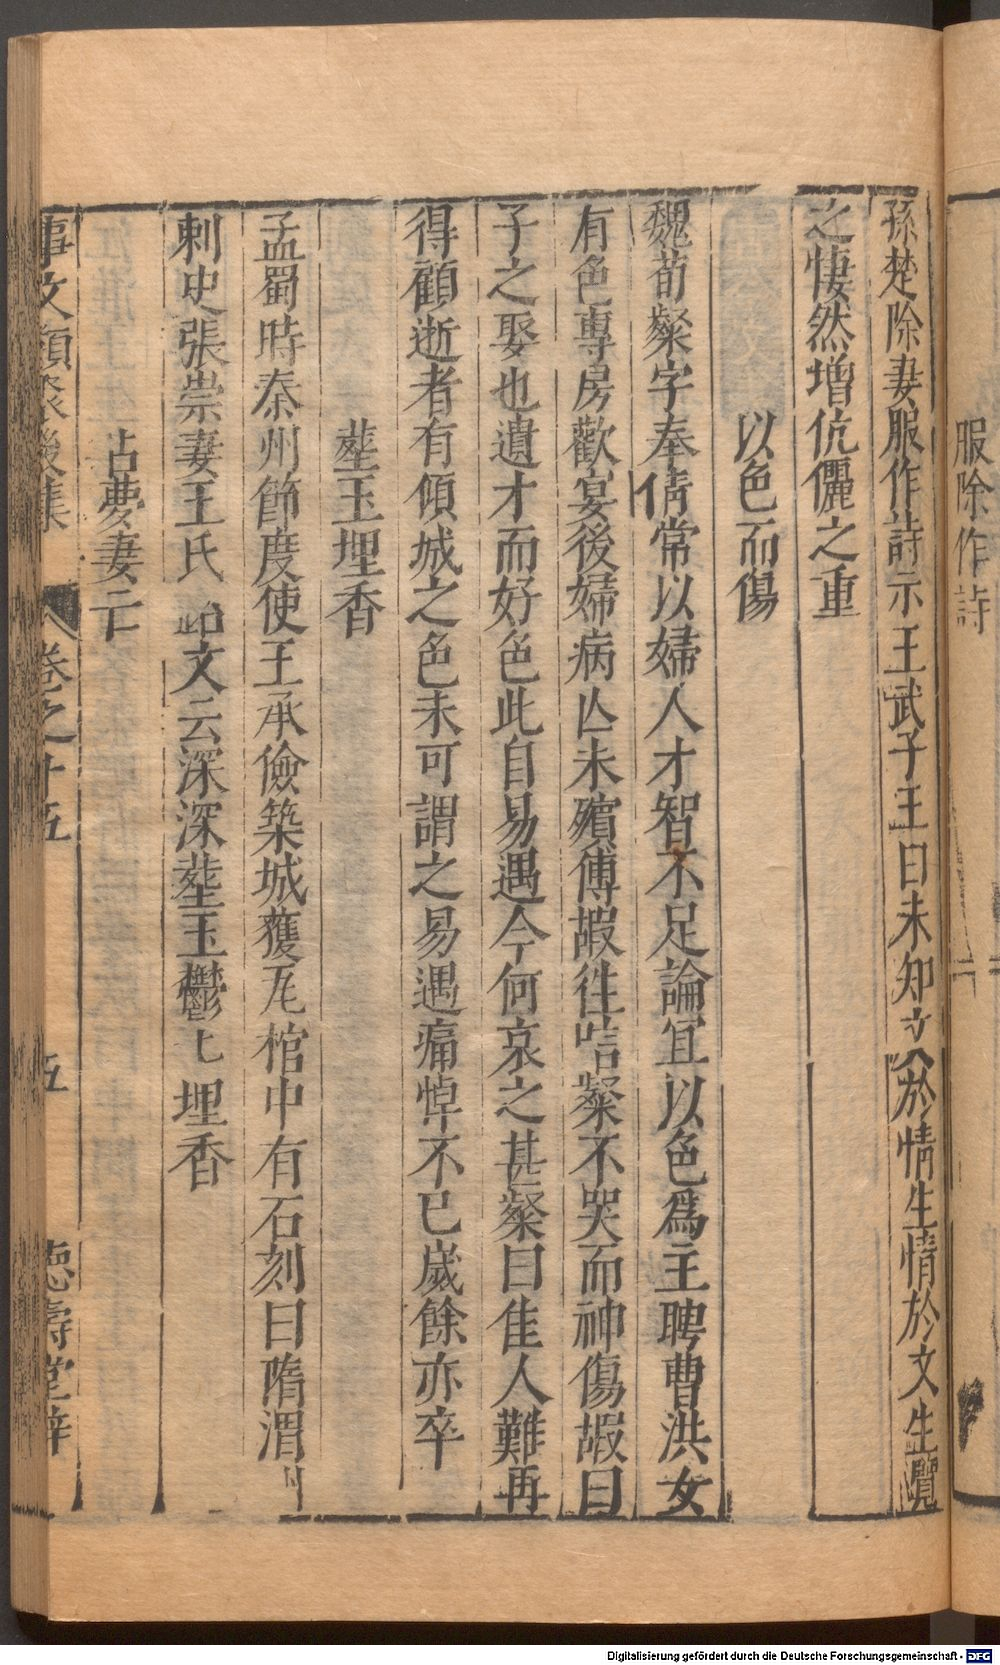 服除作詩
孫楚除妻服作詩示王武子王曰未知文於情生情於文生覽
之悽然增伉儷之重
以色而傷
魏荀粲字奉倩常以婦人才智不足論宜以色爲主聘曹洪女
有色專房歡宴後婦病亾未殯傅嘏徃唁粲不哭而神傷嘏曰
子之娶也遺才而好色此自易遇今何哀之甚粲曰佳人難再
得顧逝者有傾城之色未可謂之易遇痛悼不已歲餘亦卒
𦵏玉埋香
孟蜀時秦州節度使王承儉築城獲瓦棺中有石刻曰隋渭州
刺史張崇妻王氏銘文云深深𦵏玉鬱七埋香
占夢妻亡
事文類聚後集 卷之十五 五 德壽堂梓
Digitalisierung gefördert durch die Deutsche Forschungsgemeinschaft - DFG